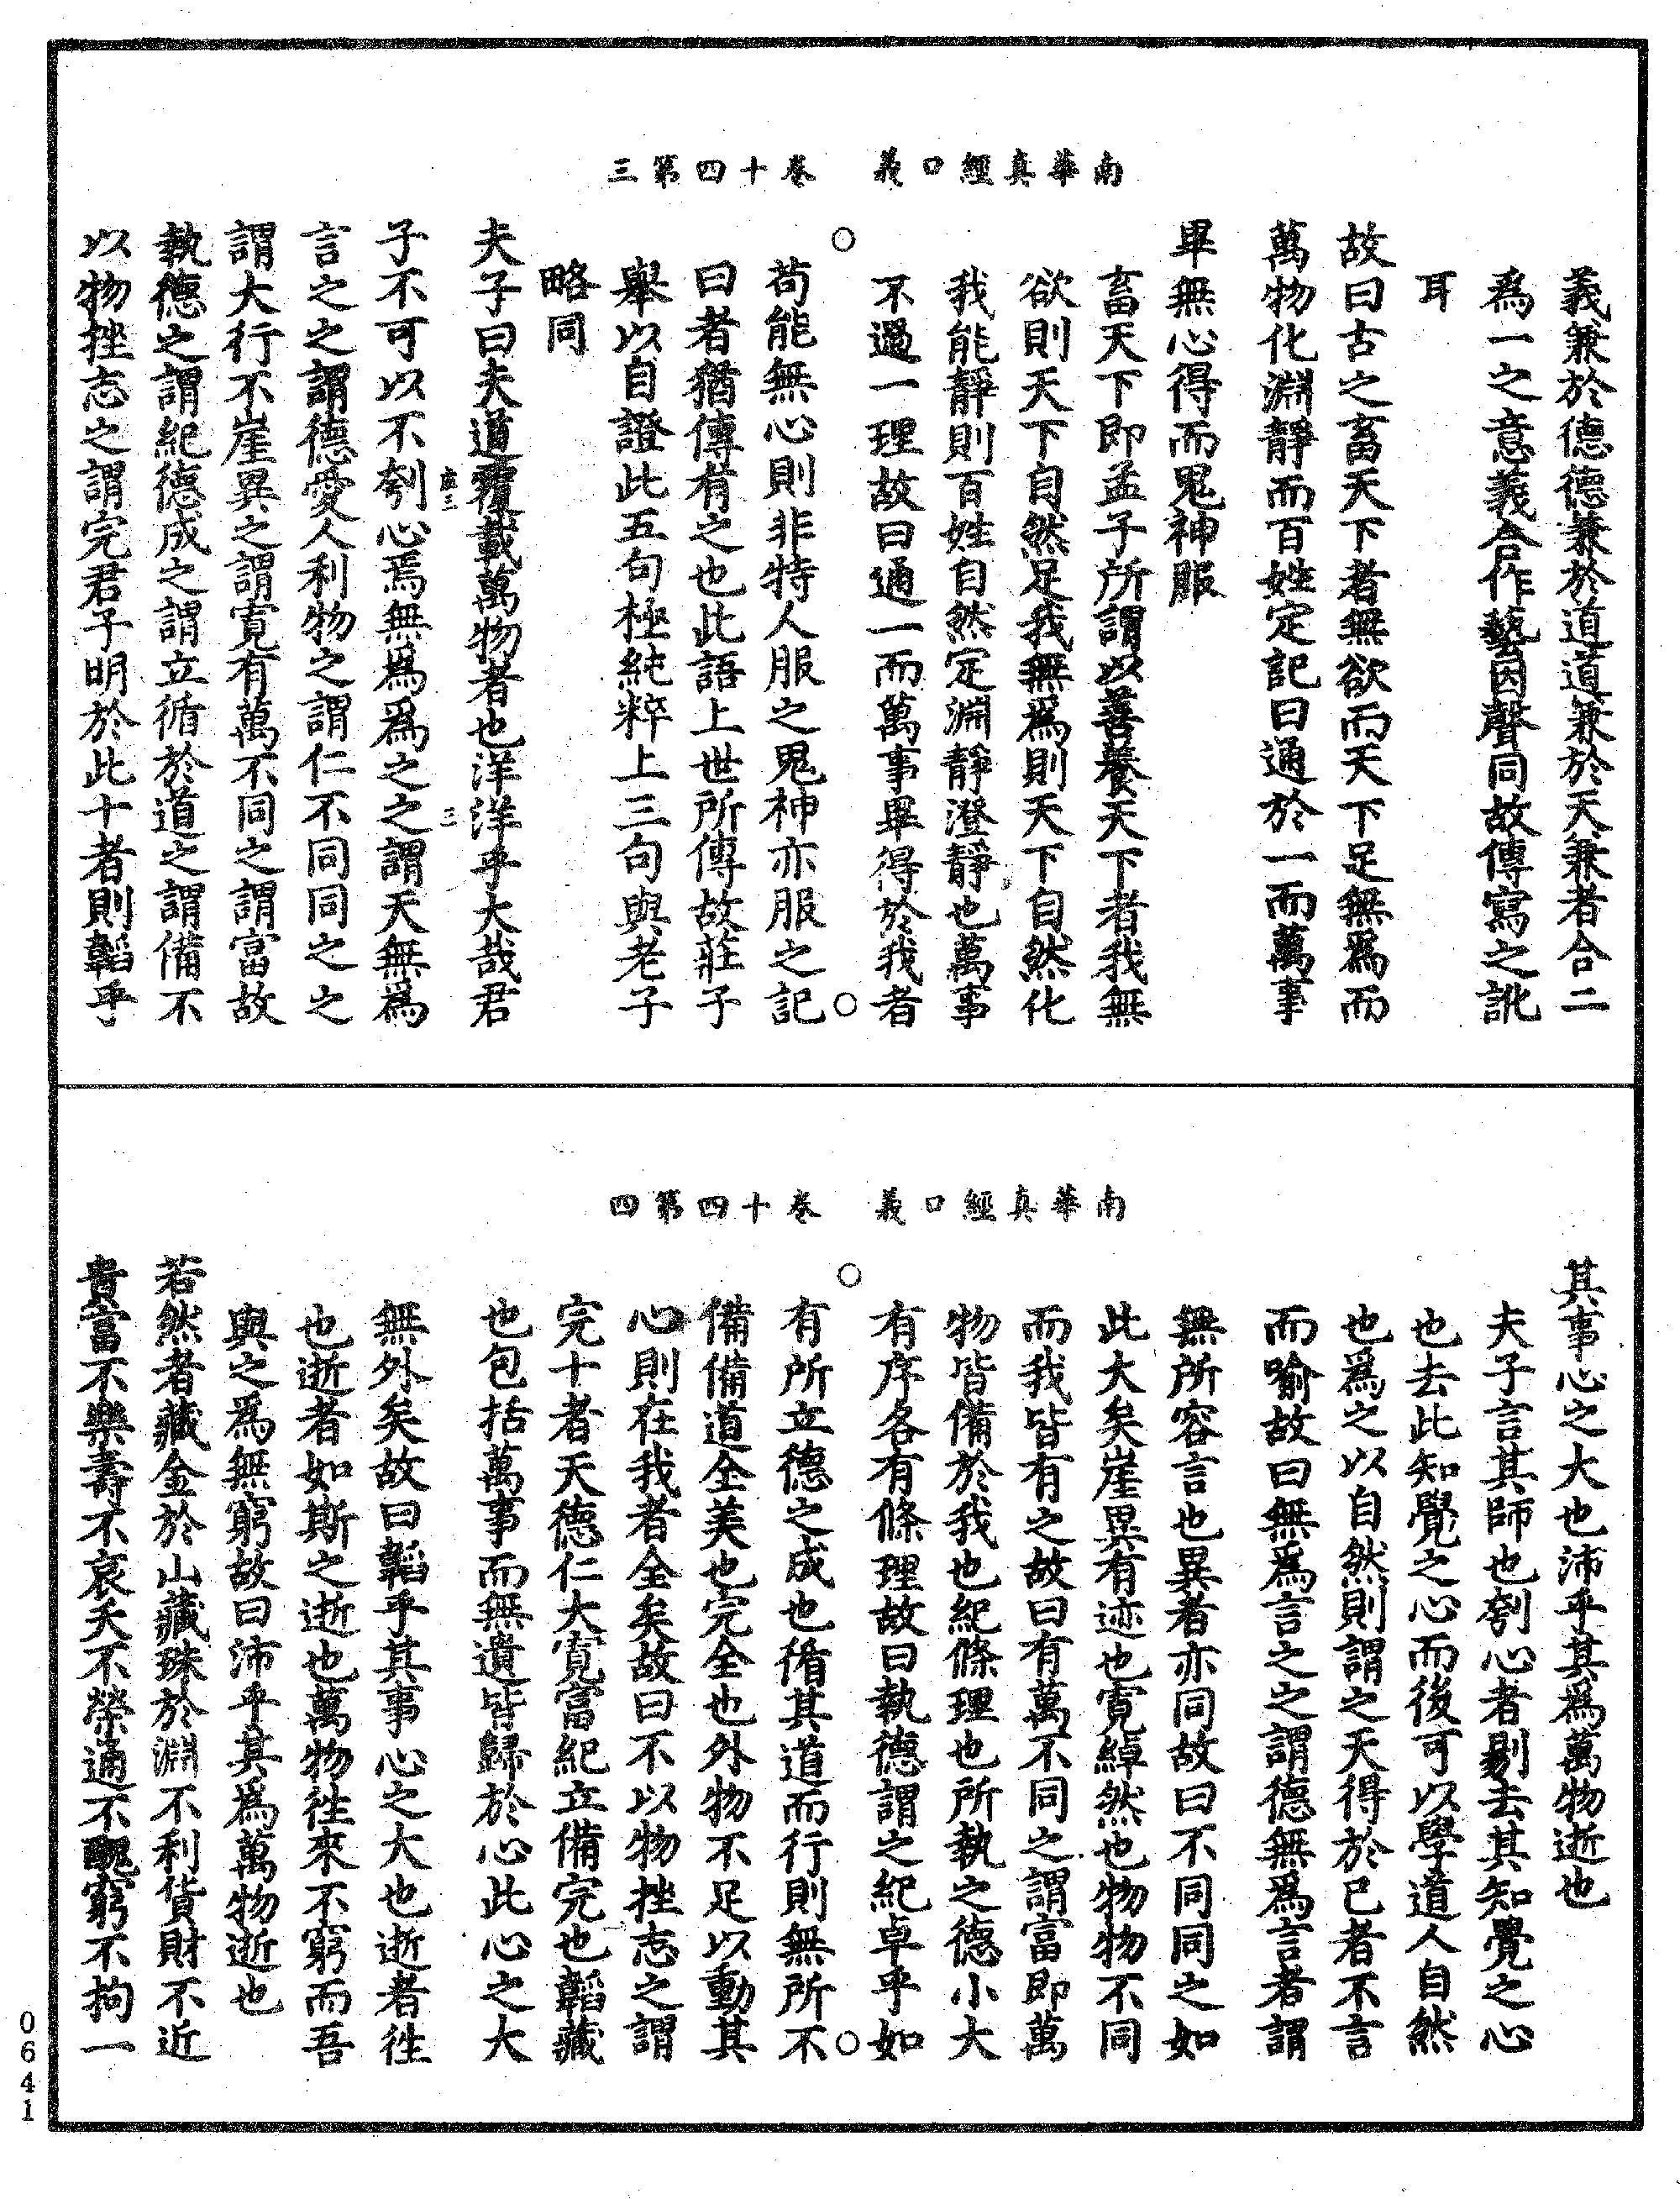 南華真經口義　卷十四第三
義兼於德德兼於道道兼於天兼者合二
為一之意義合作藝因聲同故傳寫之訛
耳
故曰古之畜天下者無欲而天下足無為而
萬物化淵靜而百姓定記曰通於一而萬事
畢無心得而鬼神服
畜天下即孟子所謂以善養天下者我無
欲則天下自然足我無為則天下自然化
我能靜則百姓自然定淵靜澄靜也萬事
不過一理故曰通一而萬事畢得於我者
苟能無心則非特人服之鬼神亦服之記
曰者猶傳有之也此語上世所傳故莊子
舉以自證此五句極純粹上三句與老子
略同
夫子曰夫道覆載萬物者也洋洋乎大哉君
子不可以不刳心焉無為為之之謂天無為
言之之謂德愛人利物之謂仁不同同之之
謂大行不崖異之謂寬有萬不同之謂富故
執德之謂紀德成之謂立循於道之謂備不
以物挫志之謂完君子明於此十者則韜乎
南華真經口義　卷十四第四
其事心之大也沛乎其為萬物逝也
夫子言其師也刳心者剔去其知覺之心
也去此知覺之心而後可以學道人自然
也為之以自然則謂之天得於己者不言
而喻故曰無為言之之謂德無為言者謂
無所容言也異者亦同故曰不同同之如
此大矣崖異有迹也寬綽然也物物不同
而我皆有之故曰有萬不同之謂富即萬
物皆備於我也紀條理也所執之德小大
有序各有條理故曰執德謂之紀卓乎如
有所立德之成也循其道而行則無所不
備備道全美也完全也外物不足以動其
心則在我者全矣故曰不以物挫志之謂
完十者天德仁大寬富紀立備完也韜藏
也包括萬事而無遺皆歸於心此心之大
無外矣故曰韜乎其事心之大也逝者往
也逝者如斯之逝也萬物往來不窮而吾
與之為無窮故曰沛乎其為萬物逝也
若然者藏金於山藏珠於淵不利貨財不近
貴富不樂壽不哀夭不榮通不醜窮不拘一
0641